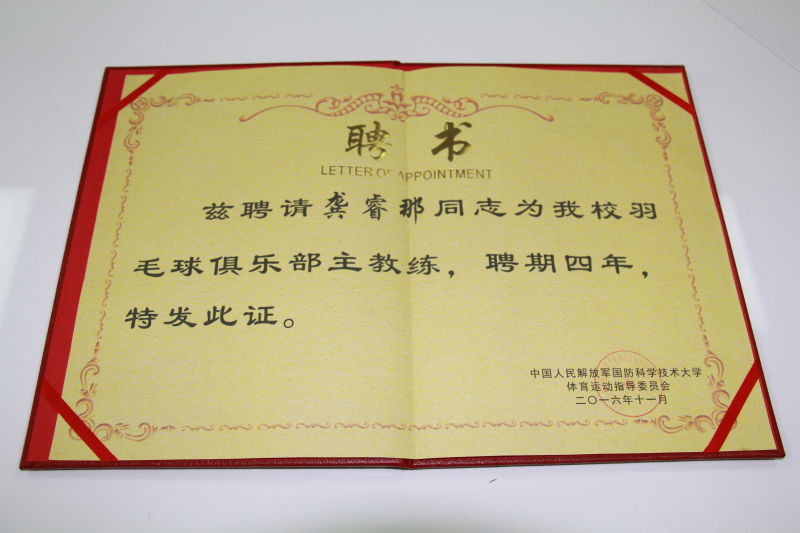 聘书
LETTER OF APPOINTMENT
兹聘请龚睿那同志为我校羽
毛球俱乐部主教练，聘期四年，
特发此证。
中国人民解放军国防科学技术大学
体育运动指导委员会
二〇一六年十一月